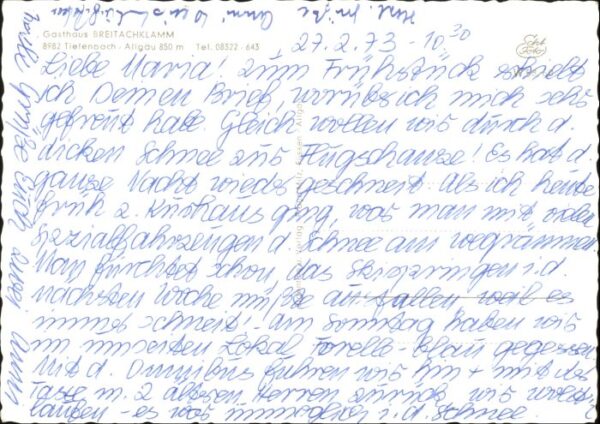 Herzl. Grüße
Gasthaus BREITACHKLAMM
8982 Tiefenbach - Allgäu 850 m Tel. 08322 - 643
27.2.73 - 10.30
Liebe Maria! Zum Frühstück erhielt
ich Deinen Brief, worüber ich mich sehr
gefreut habe. Gleich wollen wir durch d.
dicken Schnee zur Flugschanze! Es hat d.
ganze Nacht wieder geschneit. Als ich heute
früh z. Kurhaus ging, war man mit vielen
Spezialfahrzeugen d. Schnee am wegräumen
Man fürchtet schon, das Skispringen i. d.
nächsten Woche müßte ausfallen weil es
immer schneit! - Am Sonntag haben wir
im Lokal Forelle - blau gegessen.
Mit d. Omnibus fuhren wir hin + mit der
Taxe m. 2 älteren Herren zurück, wir wollten
laufen - es war unmöglich i. d. Schnee.
Grüße Euch Anni